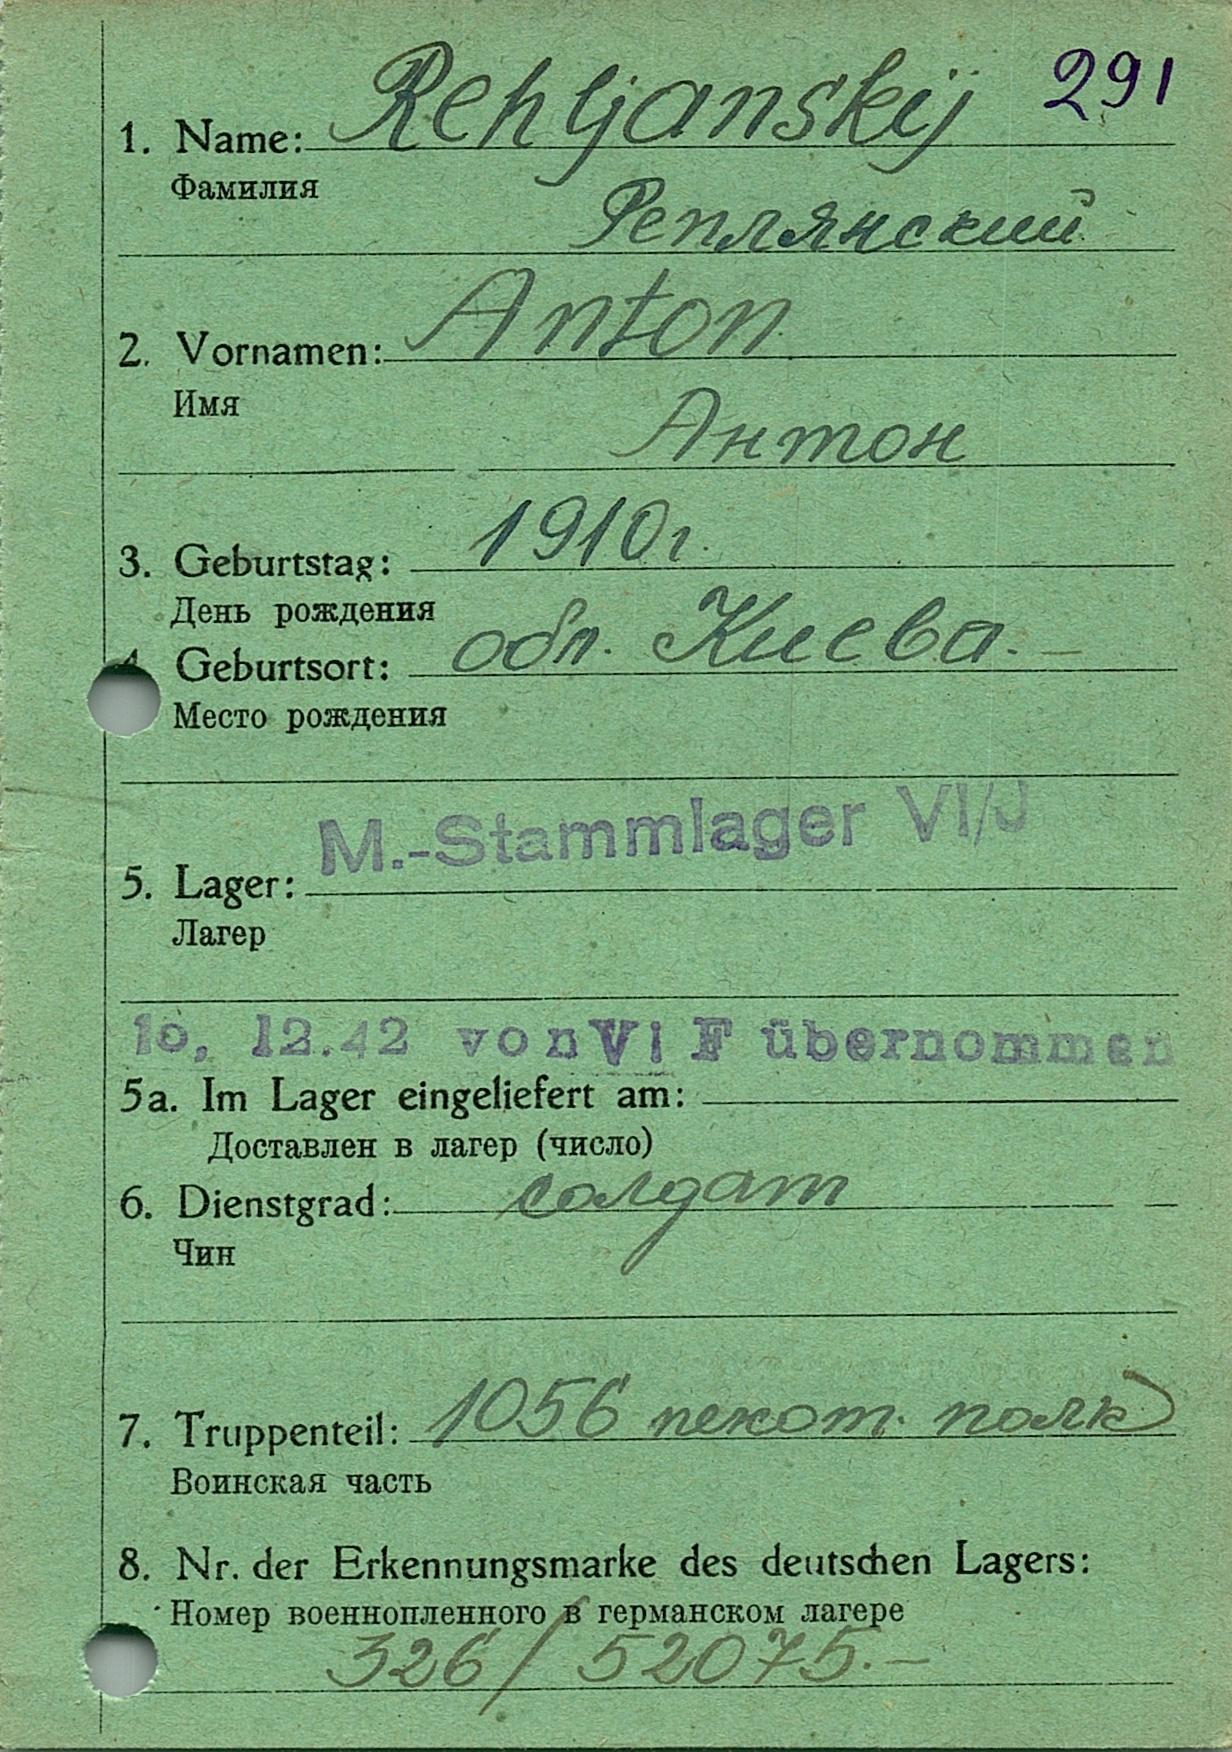 291
1. Name: Rehljanskij
Фамилия
Реплянский
2. Vornamen: Anton
Имя
Антон
3. Geburtstag: 1910г.
День рождения
4 Geburtsort: обл. Киева. –
Место рождения
M.-Stammlager VI/J
5. Lager:
Лагер
10. 12.42 von VI F übernommen
5a. Im Lager eingeliefert am:
Доставлен в лагер (число)
6. Dienstgrad: солдат
Чин
7. Truppenteil: 1056 пехот. полк
Воинская часть
8. Nr. der Erkennungsmarke des deutschen Lagers:
Номер военнопленного в германском лагере
326/52075.–